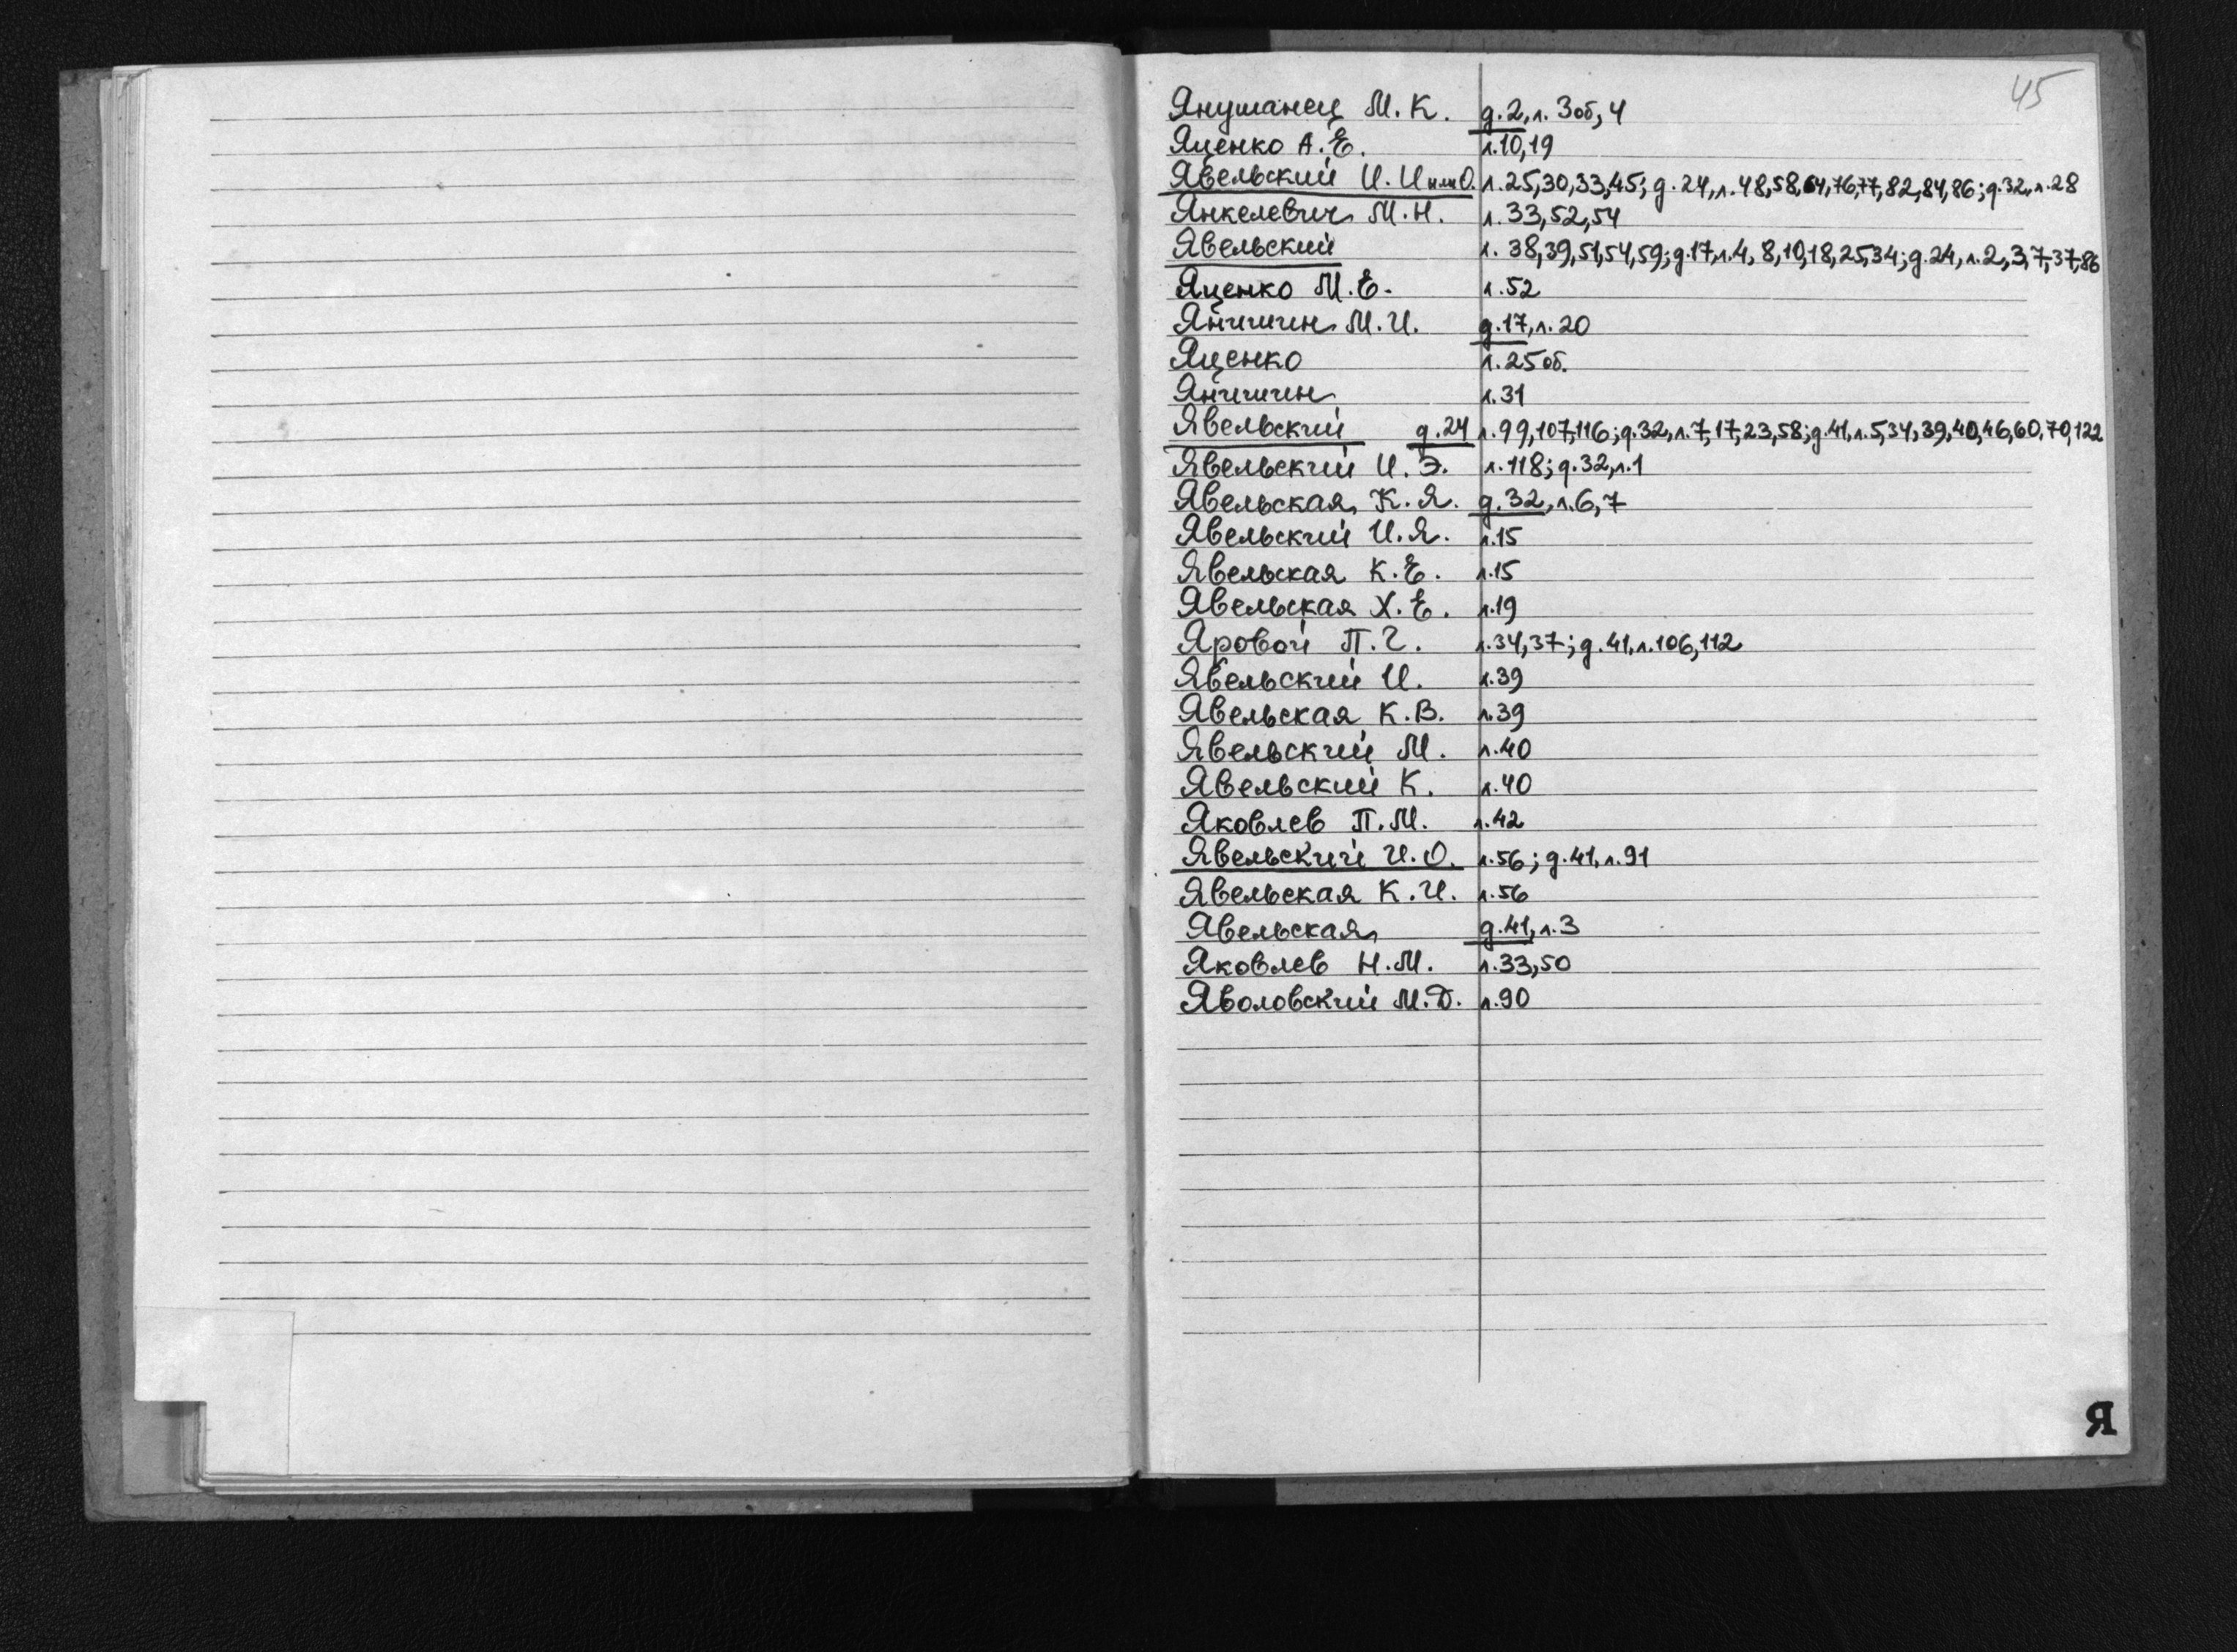 45
Янушанец М.К. д.2, л. 3об, 4
Яценко А.Е. л.10,19
Явельский И.И или О. л.25,30,33,45; д.24, л.48,58,64,76,77,82,84,86; д.32, л.28
Янкелевич М.Н. л.33,52,54
Явельский л. 38,39,51,54,59; д.17, л.4, 8,10,18,25,34; д.24, л.2,3,7,37,86
Яценко М.Е. л.52
Янчишин М.И. д.17, л.20
Яценко л.25об.
Янчишин л.31
Явельский д.24 л.99,107,116; д.32, л.7,17,23,58; д.41, л.5,34,39,40,46,60,70,122
Явельский И.Э. л.118; д.32, л.1
Явельская К.Я. д.32, л.6,7
Явельский И.Я. л.15
Явельская К.Е. л.15
Явельская Х.Е. л.19
Яровой П.Г. л.34,37; д.41, л.106,112
Явельский И. л.39
Явельская К.В. л.39
Явельский М. л.40
Явельский К. л.40
Яковлев П.М. л.42
Явельский И.О. л.56; д.41, л.91
Явельская К.И. л.56
Явельская д.41, л.3
Яковлев Н.М. л.33,50
Яволовский М.Д. л.90
Я